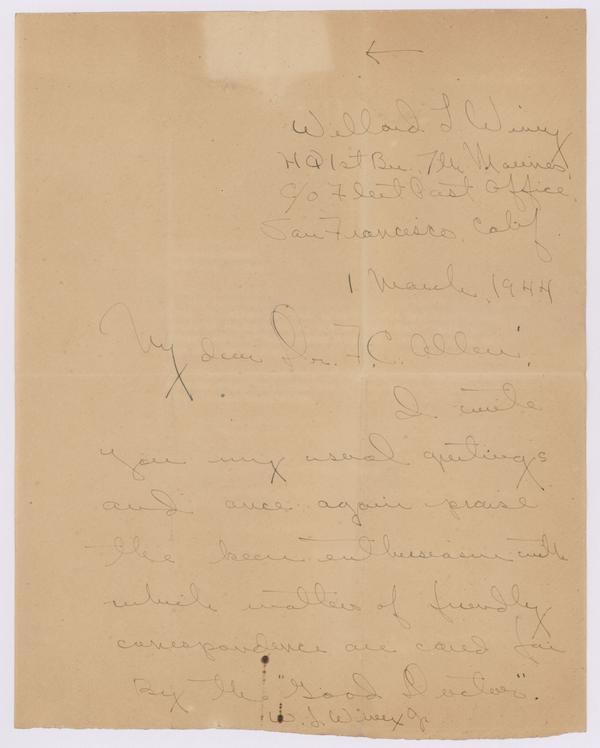 Willard L Winey
HQ 1st Bn. 7th Marines
C/o Fleet Post Office
San Francisco, Calif
1 March, 1944
My dear Dr. F.C. Allen,
I write
you my usual greetings
and once again praise
the keen enthusiasm with
which matters of friendly
correspondence are cared for
By the "Good Doctor".
W. L. Winey Jr.